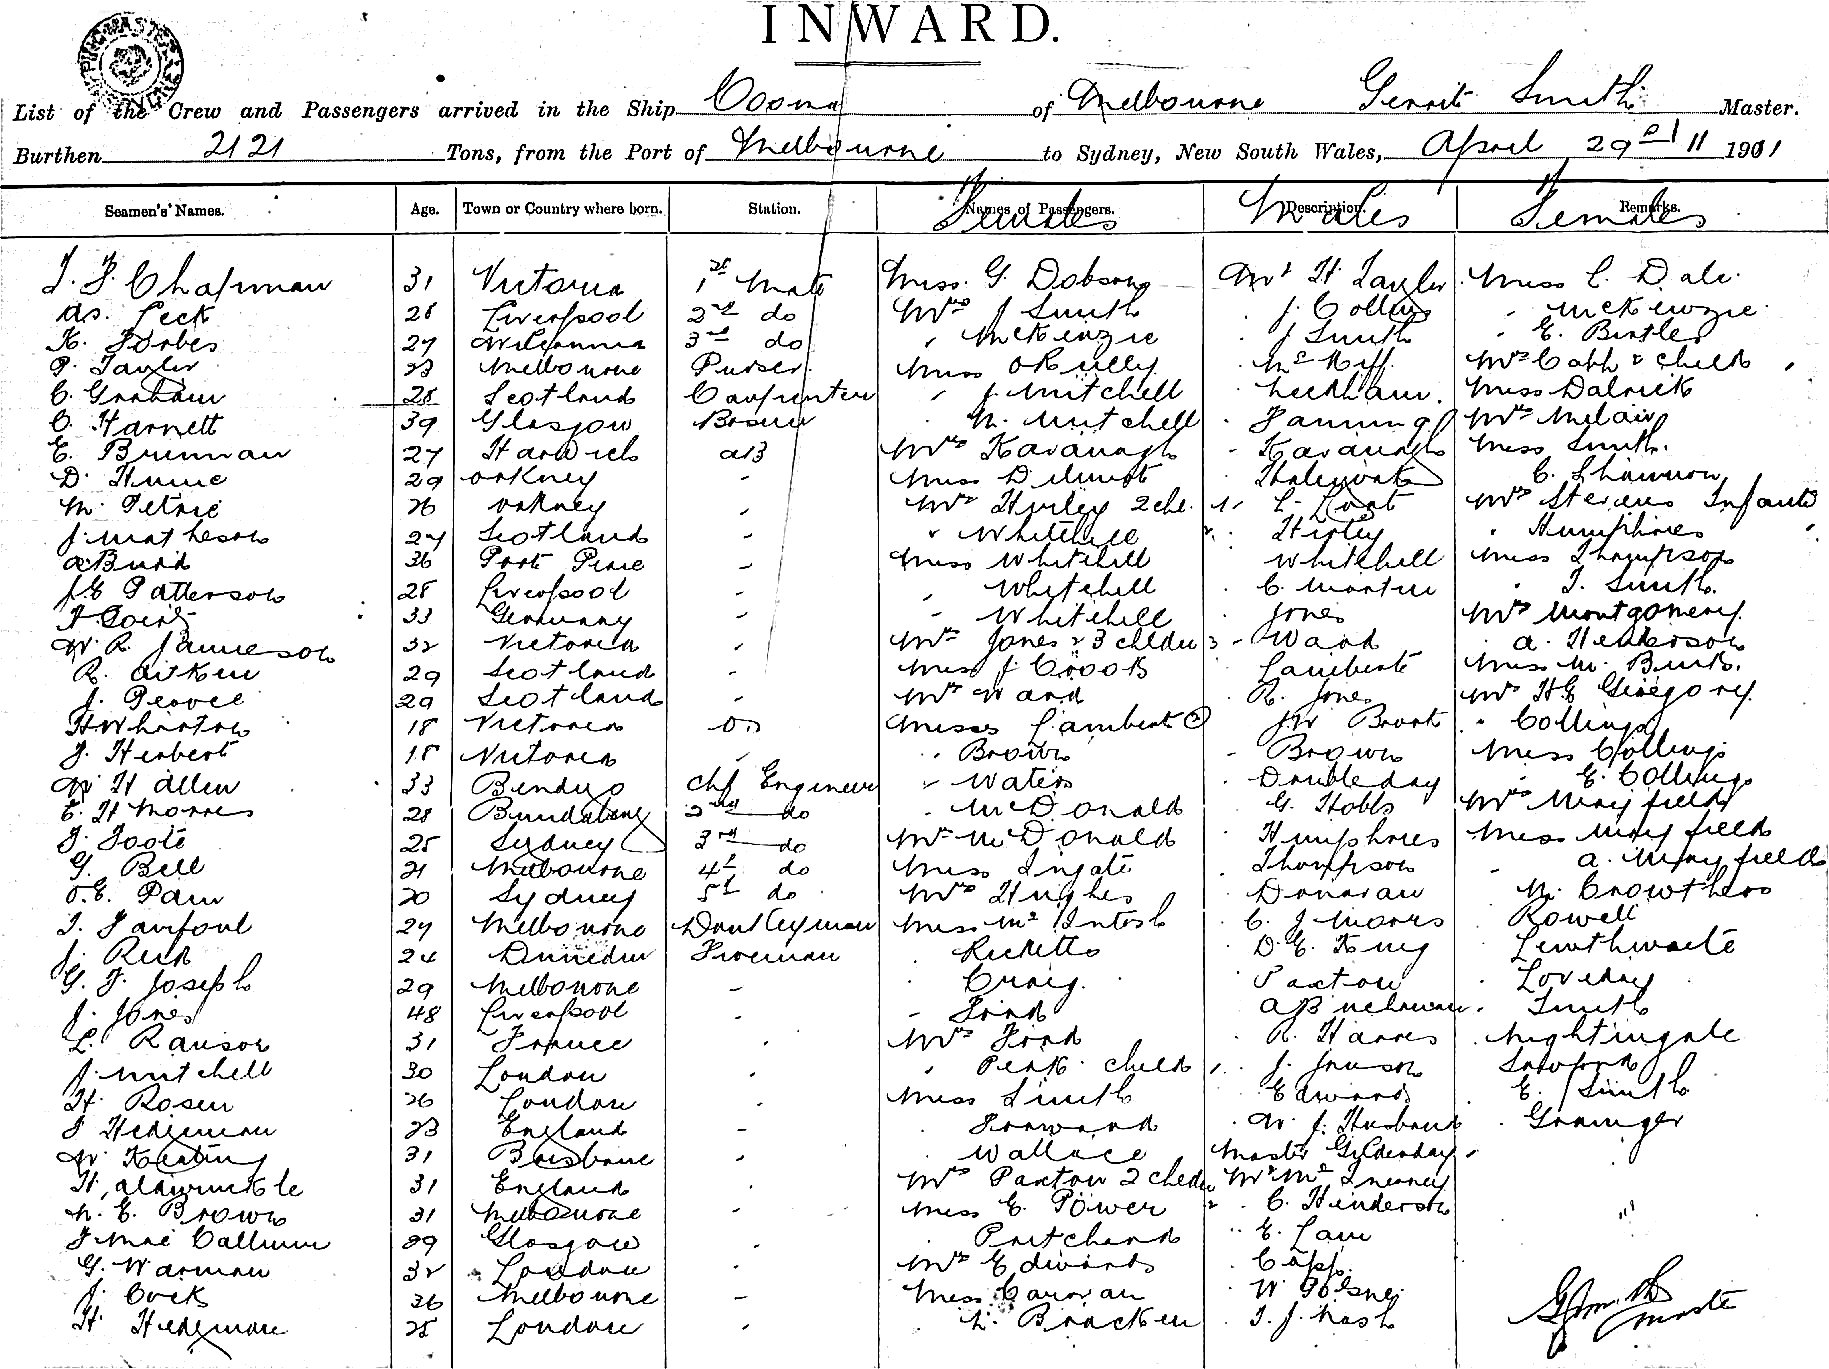 INWARD.
List of the Crew and Passengers arrived in the Ship Cooma of Melbourne Gerrit Smith Master.
Burthen 2121 Tons, from the Port of Melbourne to Sydney, New South Wales, April 29 11 1901
Seamen's Names. Age. Town or Country where born. Station. Names of Passengers. Description. Remarks.
Females Males Females
Chapman 31 Victoria 1st Mate Miss. G. Dobson Mr H Tayler Miss C. Dale
Peck 28 Liverpool 2nd do Mrs J Smith J Collins McKewzie
K. Forbes 29 3rd do McKenzie J Smith E. Bintler
P. Tayler 23 Melbourne Purser Miss OReilly Mrs Cobb & Child
C. Graham 28 Scotland Carpenter J. Mitchell Miss Dalrick
C. Harnett 39 Glasgow Bosun M. Mitchell Fanning Mrs
E. Brennan 27 Harwich AB Mrs Kavanagh Kavanagh Miss Smith.
D. Hume 29 Orkney Miss C. Shannon
M. Petrie 26 Orkney Mrs Hurley 2 che. Mrs Stevens Infant
J. Matheson 27 Scotland Whitehill Humphries
A Burd 36 Port Pirie Miss Whitehill Whitehill Miss Thompson
J. G Patterson 28 Liverpool Whitehill C. Martin T. Smith
33 Germany Whitehill Jones Mrs Montgomery
W. R. Jamieson 32 Victoria Mrs Jones & 3 children 3 Ward A. Henderson
R. Aitken 29 Scotland Miss J Crooks Lamberts Miss M.
J. 29 Scotland Mrs Ward R. Jones Mrs H G Gregory
H Wharton 18 Victoria OS Misses Lambert 2 J W Collings
J. Herbert 18 Victoria Brown Brown Miss Collings
W H Allen 33 Bendigo Chf Engineer Waters Doubleday E. Collings
E. H Morris 28 Bundaberg 2nd do McDonald G. Hobbs Mrs Mayfield
J. Foote 25 Sydney 3rd do Mrs McDonald Humphries Miss Mayfield
G. Bell 21 Melbourne 4th do Miss Lingate Thompson A. Mayfield
O. E. Pam 20 Sydney 5th do Mrs Hughes Donovan M. Crowthers
29 Melbourne Donkeyman Miss McIntosh C. J Morris Rowell
J. Reid 24 Dunedin Fireman Ricketts D. E. King Lewthwaite
G. F. Joseph 29 Melbourne Craig. Paxton Loveday
J. Jones 48 Liverpool Ford Smith
L. Ransor 31 France Mrs Ford R. Harris Nightingale
J. Mitchell 30 London Peak child 1 J. Jonson Sanford
H. Rosen 26 London Miss Smith Edwards E. Smith
J Hedgeman 23 England Forward W. J. Husband Grainger
W. Keating 31 Brisbane Wallace Master Gyldenday
H. Aldwinckle 31 England Mrs Paxton 2 children Mr
M. E. Brown 31 Melbourne Miss E. Power C. Henderson
J MacCallum 39 Glasgow Pritchard E. Law
G. Warman 32 London Mrs Edwards Capp.
J. Cock 26 Melbourne Miss W
H. Hedgeman 28 London L. Bracken T. J. Nash